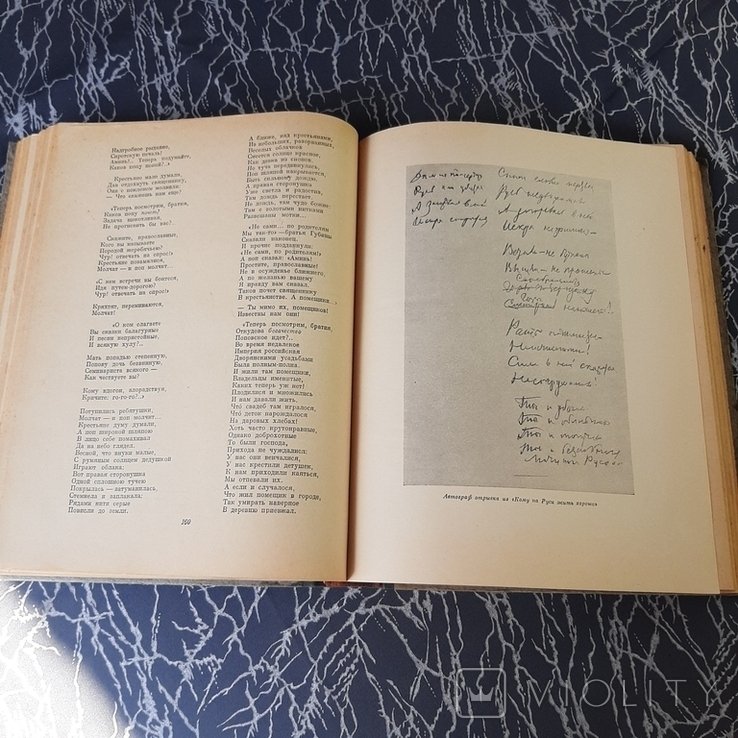 Надгробное рыданье,
Сиротскую печаль!
Аминь!.. Теперь подумайте,
Каков попу покой?..»
Крестьяне мало думали,
Дав отдохнуть священнику,
Они с поклоном молвили:
— Что скажешь нам еще?
«Теперь посмотрим, братия,
Каков попу почет!
Задача щекотливая,
Не прогневить бы вас?..
Скажите, православные,
Кого вы называете
Породой жеребячьею?
Чур! отвечать на спрос!»
Крестьяне позамялися,
Молчат — и поп молчит...
«С кем встречи вы боитеся,
Идя путем-дорогою?
Чур! отвечать на спрос!»
Кряхтят, переминаются,
Молчат!
«О ком слагаете
Вы сказки балагурные
И песни непристойные,
И всякую хулу?..
Мать попадью степенную,
Попову дочь безвинную,
Семинариста всякого —
Как чествуете вы?
Кому вдогон, злорадствуя,
Кричите: го-го-го?..»
Потупились ребятушки,
Молчат — и поп молчит...
Крестьяне думу думали,
А поп широкой шляпою
В лицо себе помахивал
Да на небо глядел.
Весной, что внуки малые,
С румяным солнцем дедушкой
Играют облака:
Вот правая сторонушка
Одной сплошною тучею
Покрылась — затуманилась,
Стемнела и заплакала:
Рядами нити серые
Повисли до земли.
А ближе, над крестьянами,
Из небольших, разорванных,
Веселых облачков
Смеется солнце красное,
Как девка из снопов.
Но туча передвинулась,
Поп шляпой накрывается,
Быть сильному дождю.
А правая сторонушка
Уже светла и радостна,
Там дождь перестает.
Не дождь, там чудо божие:
Там с золотыми нитками
Развешаны мотки...
«Не сами... по родителям
Мы так-то» — братья Губины
Сказали наконец.
И прочие поддакнули:
«Не сами, по родителям!»
А поп сказал: «Аминь!
Простите, православные!
Не в осужденье ближнего,
А по желанью вашему
Я правду вам сказал.
Таков почет священнику
В крестьянстве. А помещики...»
— Ты мимо их, помещиков!
Известны нам они!
«Теперь посмотрим, братия,
Откудова богачество
Поповское идет?..
Во время недалекое
Империя российская
Дворянскими усадьбами
Была полным-полна.
И жили там помещики,
Владельцы именитые,
Каких теперь уж нет!
Плодилися и множились
И нам давали жить.
Что свадеб там игралося,
Что деток нарождалося
На даровых хлебах!
Хоть часто крутонравные,
Однако доброхотные
То были господа,
Прихода не чуждались:
У нас они венчалися,
У нас крестили детушек,
К нам приходили каяться,
Мы отпевали их.
А если и случалося,
Что жил помещик в городе,
Так умирать наверное
В деревню приезжал.
160
Русь не
А
Искра
Верят-не
Рать
Ты и
Ты и
Ты и
Ты и
Автограф отрывка из «Кому на Руси жить хорошо»
VIOLITY